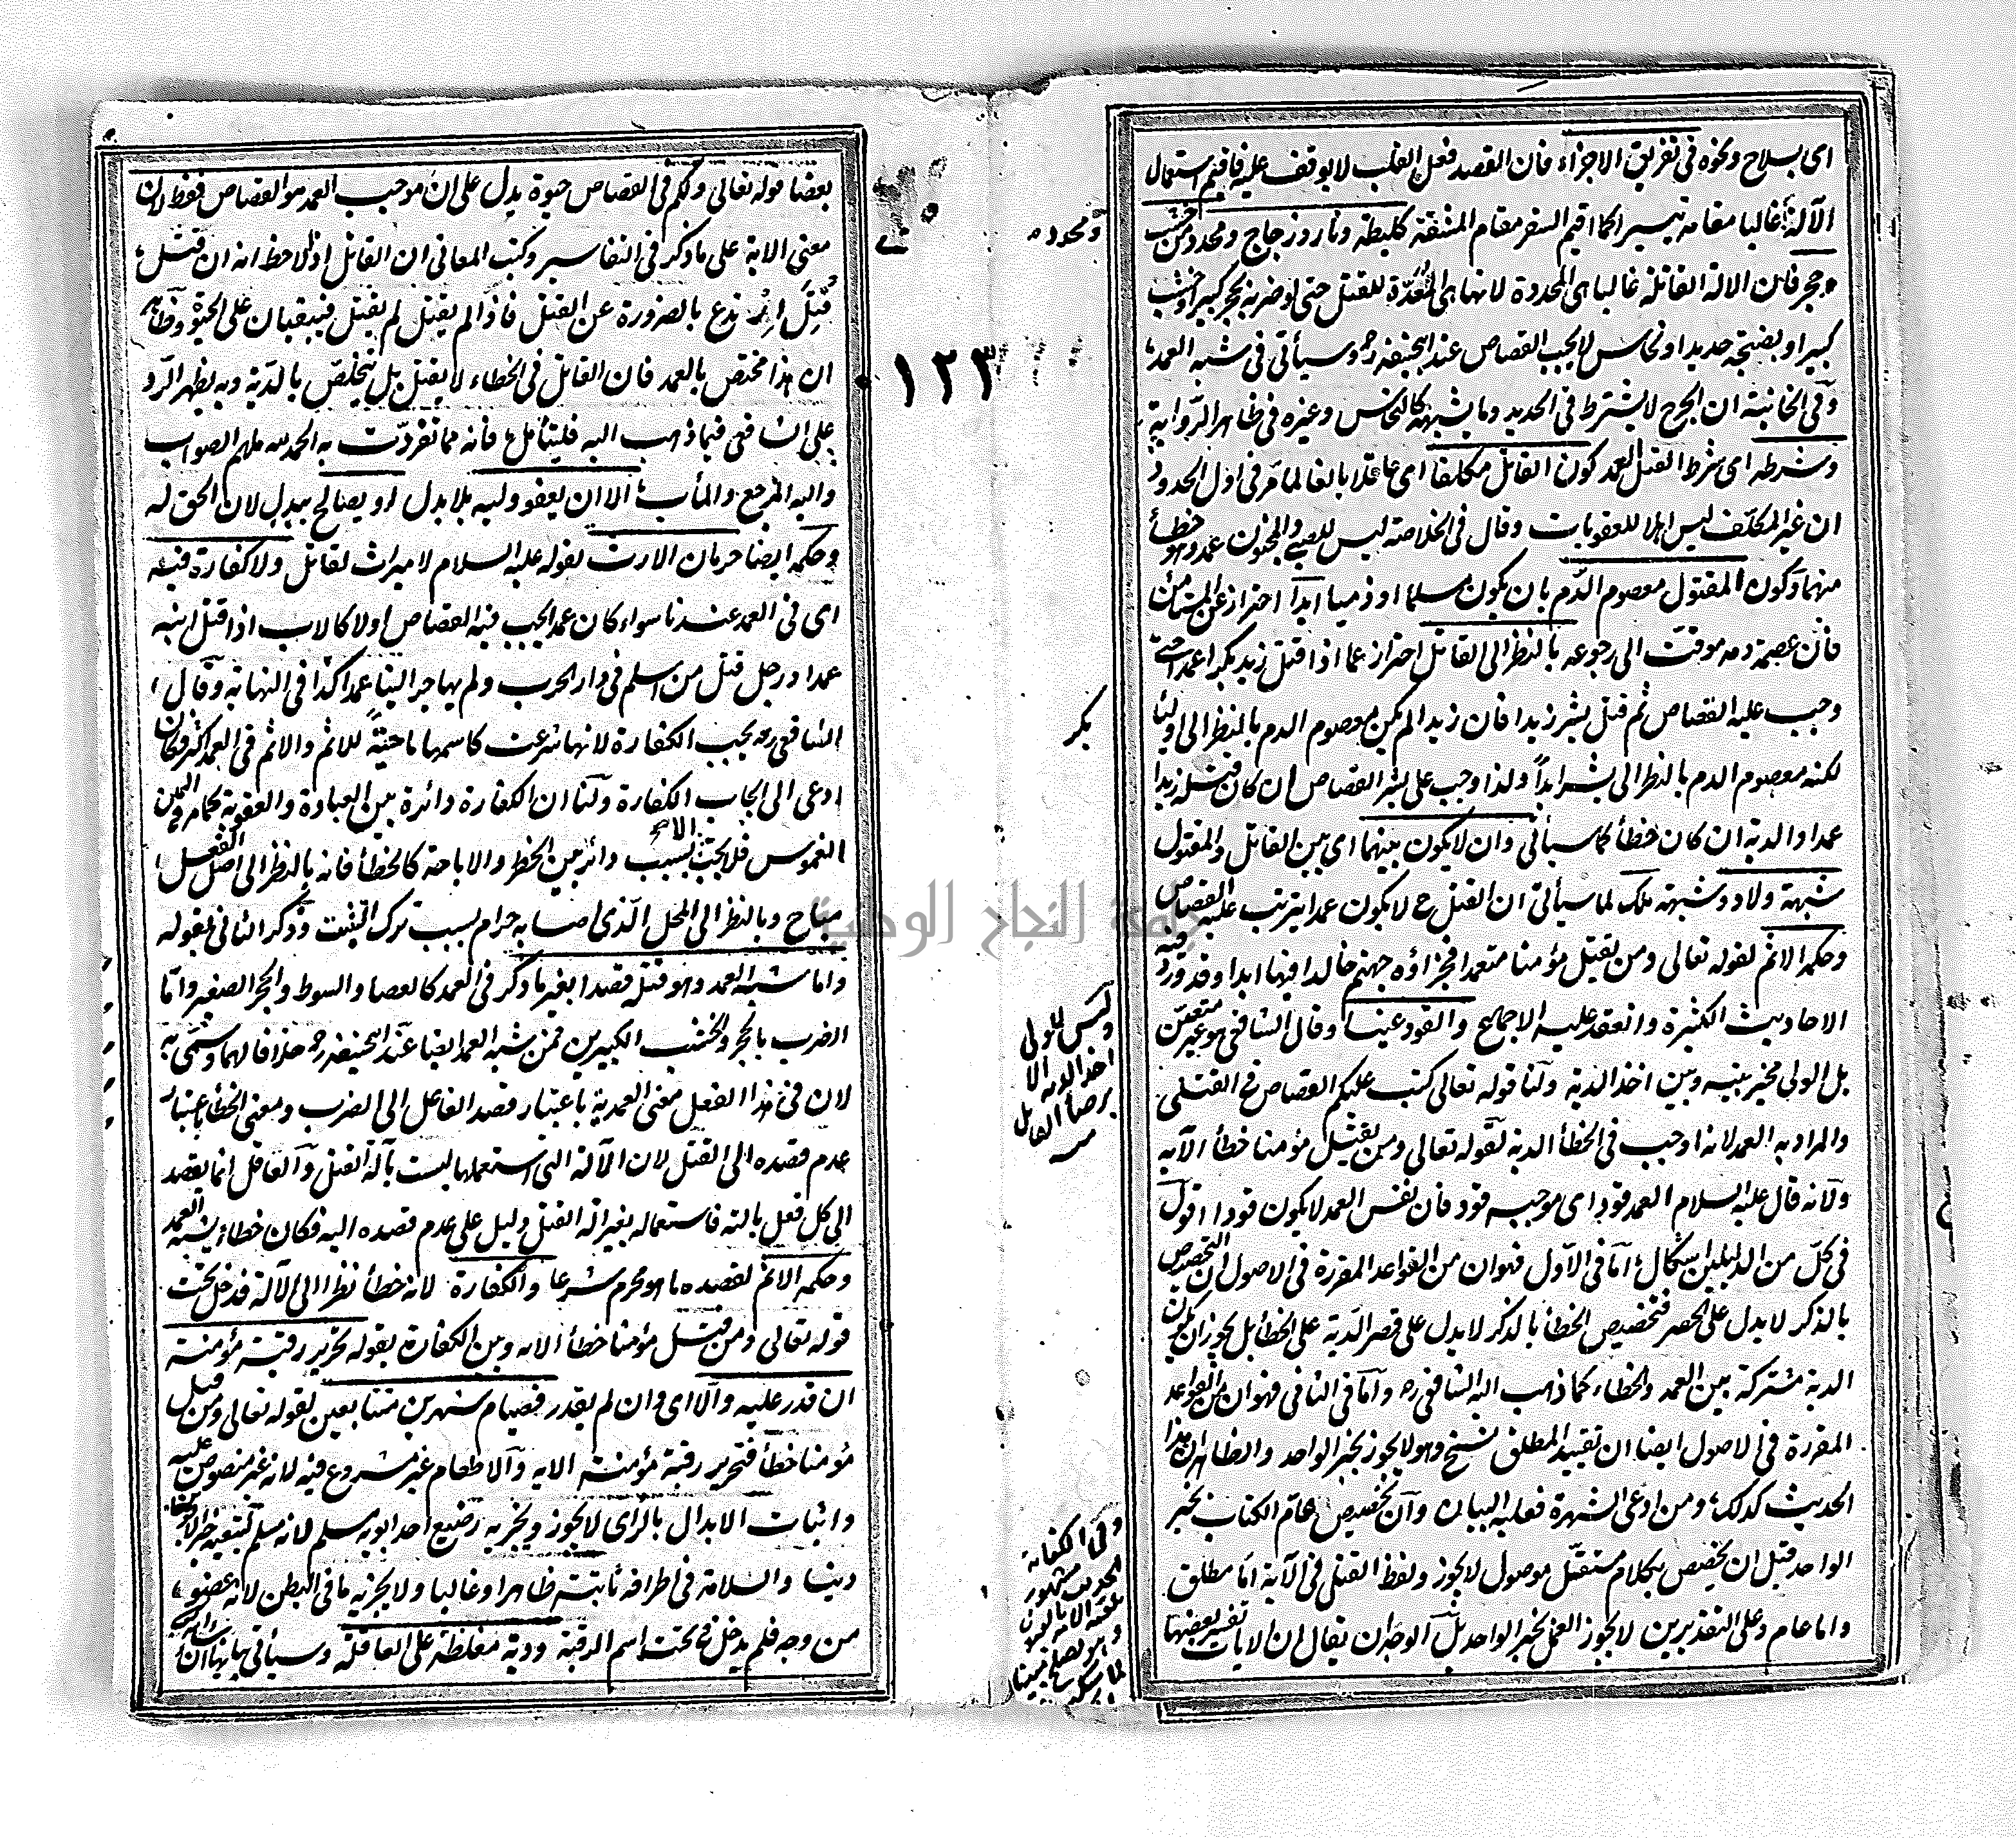 اى بسلاح ونحوه فى تفريق الاجزاء فان القصد فعل القلب لا يوقف عليه فاقيم استعمال
الآلة غالبا مقامه تيسيرا كما اقيم السفر مقام المشقة كليطة ونار وزجاج ومحدد من خشب
وحجر فان الالة القاتلة غالبا هى المحددة لانها هى المعدّة للقتل حتى لو ضربه بحجر كبير او خشب
كبير او بصنجة حديد او نحاس لا يجب القصاص عند ابيحنيفه ره وسيأتى فى شبه العمد
وفى الخانية ان الجرح لا يشترط فى الحديد وما يشبهه كالنحاس وغيره فى ظاهر الرواية
وشرطه اى شرط القتل العمد كون القاتل مكلفا اى عاقلا بالغا لما مر فى اول الحدود
ان غير المكلف ليس اهلا للعقوبات وقال فى الخلاصة ليس للصبى والمجنون عمد وهو خطأ
منهما وكون المقتول معصوم الدم بان يكون مسلما او ذميا ابدا احتراز عن المستأمن
فان عصمة دمه موقت الى رجوعه بالنظر الى القاتل احتراز عما اذا قتل زيد بكرا عمدا حتى
وجب عليه القصاص ثم قتل بشر زيدا فان زيدا لم يكن معصوم الدم بالنظر الى اولياء
بكر
لكنه معصوم الدم بالنظر الى بشر ابدا ولذا وجب على بشر القصاص ان كان قتله زيدا
عمدا والدية ان كان خطأ كما سيأتى وان لا يكون بينهما اى بين القاتل والمقتول
شبهة ولاد وشبهة ملك لما سيأتى ان القتل ح لا يكون عمدا يترتب عليه القصاص
وحكمه الاثم لقوله تعالى ومن يقتل مؤمنا متعمدا فجزاؤه جهنم خالدا فيها ابدا وقد ورد فيه
الاحاديث الكثيرة وانعقد عليه الاجماع والقود عينا وقال الشافعى هو غير متعين
بل الولى مخير بينه وبين اخذ الدية ولنا قوله تعالى كتب عليكم القصاص فى القتلى
والمراد به العمد لانه اوجب فى الخطأ الدية لقوله تعالى ومن يقتل مؤمنا خطأ الآية
ولانه قال عليه السلام العمد قود اى موجبه قود فان نفس العمد لا يكون قودا اقول
فى كل من الدليلين اشكال اما فى الاول فهو ان من القواعد المقررة فى الاصول ان التخصيص
بالذكر لا يدل على الحصر فتخصيص الخطأ بالذكر لا يدل على قصر الدية على الخطأ بل يجوز ان يكون
الدية مشتركة بين العمد والخطاء كما ذهب اليه الشافعى ره واما فى الثانى فهو ان من القواعد
المقررة فى الاصول ايضا ان تقييد المطلق نسخ وهو لا يجوز بخبر الواحد والظاهر ان هذا
الحديث كذلك ومن ادعى الشهرة فعليه البيان وان تخصيص عام الكتاب بخبر
الواحد قبل ان يخصص بكلام مستقل موصول لا يجوز ولفظ القتلى فى الآية اما مطلق
واما عام وعلى التقديرين لا يجوز العمل بخبر الواحد بل الوجه ان يقال ان الايات تفسير بعضها
ومحدده
ليس للولى
اخذ الدية الا
برضا القاتل
١٢٣
بعضا قوله تعالى ولكم فى القصاص حيوة يدل على ان موجب العمد هو القصاص فقط لان
معنى الاية على ما ذكر فى التفاسير وكتب المعانى ان القاتل اذا لاحظ انه ان قتل
قُتِلَ ارتدع بالضرورة عن القتل فاذا لم يقتل لم يقتل فيبقيان على الحيوة وظاهر
ان هذا مختص بالعمد فان القاتل فى الخطاء لا يقتل بل يتخلص بالدية وبه يظهر الرد
على الشافعى فيما ذهب اليه فليتأمل فانه مما تفردت به الحمد لله ملهم الصواب
واليه المرجع والمأب الا ان يعفو وليه بلا بدل او يصالح ببدل لان الحق له
وحكمه ايضا حرمان الارث لقوله عليه السلام لا ميراث لقاتل ولا كفارة فيه
اى فى العمد عندنا سواء كان عمدا يجب فيه القصاص اولا كالاب اذا قتل ابنه
عمدا ورجل قتل من اسلم فى دار الحرب ولم يهاجر الينا عمدا كذا فى النهاية وقال
الشافعى ره يجب الكفارة لانها شرعت كاسمها ماحية للاثم والاثم فى العمد اكثر فكان
ادعى الى ايجاب الكفارة ولنا ان الكفارة دائرة بين العبادة والعقوبة كما مر فى اليمين
الغموس فلا يجب الا بسبب دائر بين الحظر والاباحة كالخطأ فانه بالنظر الى اصل الفعل
مباح وبالنظر الى المحل الذى اصابه حرام بسبب ترك التثبت وذكر الثانى بقوله
واما شبه العمد وهو قتله قصدا بغير ما ذكر فى العمد كالعصا والسوط والحجر الصغير واما
الضرب بالحجر والخشب الكبيرين فمن شبه العمد ايضا عند ابيحنيفه ره خلافا لهما وسمى به
لان فى هذا الفعل معنى العمدية باعتبار قصد الفاعل الى الضرب ومعنى الخطأ باعتبار
عدم قصده الى القتل لان الآلة التى استعملها ليست بآلة القتل والعاقل انما يقصد
الى كل فعل بالته فاستعماله بغير آلة القتل دليل على عدم قصده اليه فكان خطاء يشبه العمد
وحكمه الاثم لقصده ما هو محرم شرعا والكفارة لانه خطأ نظرا الى الآلة فدخل تحت
قوله تعالى ومن قتل مؤمنا خطأ الاية وبين الكفارة بقوله تحرير رقبة مؤمنة
ان قدر عليه والا اى وان لم يقدر فصيام شهرين متتابعين لقوله تعالى ومن قتل
مؤمنا خطأ فتحرير رقبة مؤمنة الاية والاطعام غير مشروع فيه لانه غير منصوص عليه
واثبات الابدال بالرأى لا يجوز ويجزيه رضيع احد ابويه مسلم لانه مسلم بتبعية خير الابوين
دينا والسلامة فى اطرافه ثابتة ظاهرا وغالبا ولا يجزيه ما فى البطن لانه عضو
من وجه فلم يدخل فى تحت اسم الرقبة ودية مغلظة على العاقلة وسيأتى بيانها ان شاء الله
جامعة النجاح الوطنية